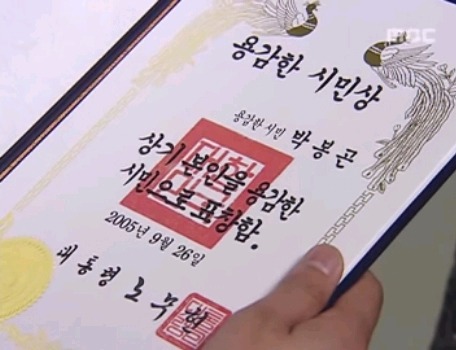 MBC
용감한 시민상
용감한 시민 박봉곤
상기 본인을 용감한
시민으로 표창함.
2005년 9월 26일
대통령 노무현